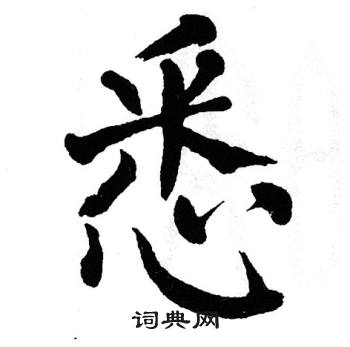 悉
词典网